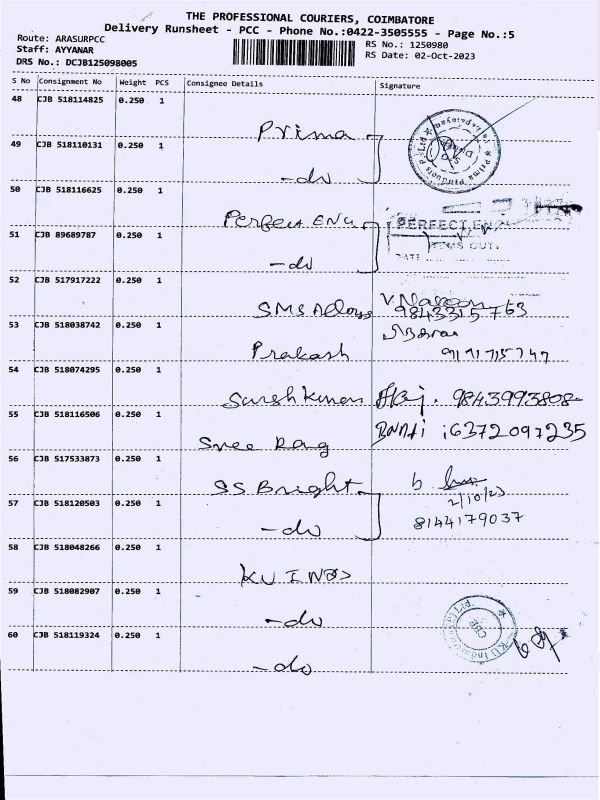 THE PROFESSIONAL COURIERS, COIMBATORE
Delivery Runsheet - PCC - Phone No.:0422-3505555 - Page No.:5
Route: ARASURPCC
RS No.: 1250980
Staff: AYYANAR
RS Date: 02-Oct-2023
DRS No.: DCJB125098005
S No Consignment No Weight PCS Consignee Details Signature
48 CJB 518114825 0.250 1 Prima
49 CJB 518110131 0.250 1 -do
50 CJB 518116625 0.250 1 Perfect ENG
PERFECT
51 CJB 89689787 0.250 1 -do
ITEMS OUT
DATE
52 CJB 517917222 0.250 1 SMS Alloys V. Naveen
9843315763
53 CJB 518038742 0.250 1 Prakash
54 CJB 518074295 0.250 1 Suresh Kumar 9843993808
55 CJB 518116506 0.250 1 Sree Rag 6372097235
56 CJB 517533873 0.250 1 SS Bright b
2/10/23
57 CJB 518120503 0.250 1 -do 8144179037
58 CJB 518048266 0.250 1 KU INDS
59 CJB 518082907 0.250 1 -do
60 CJB 518119324 0.250 1 -do